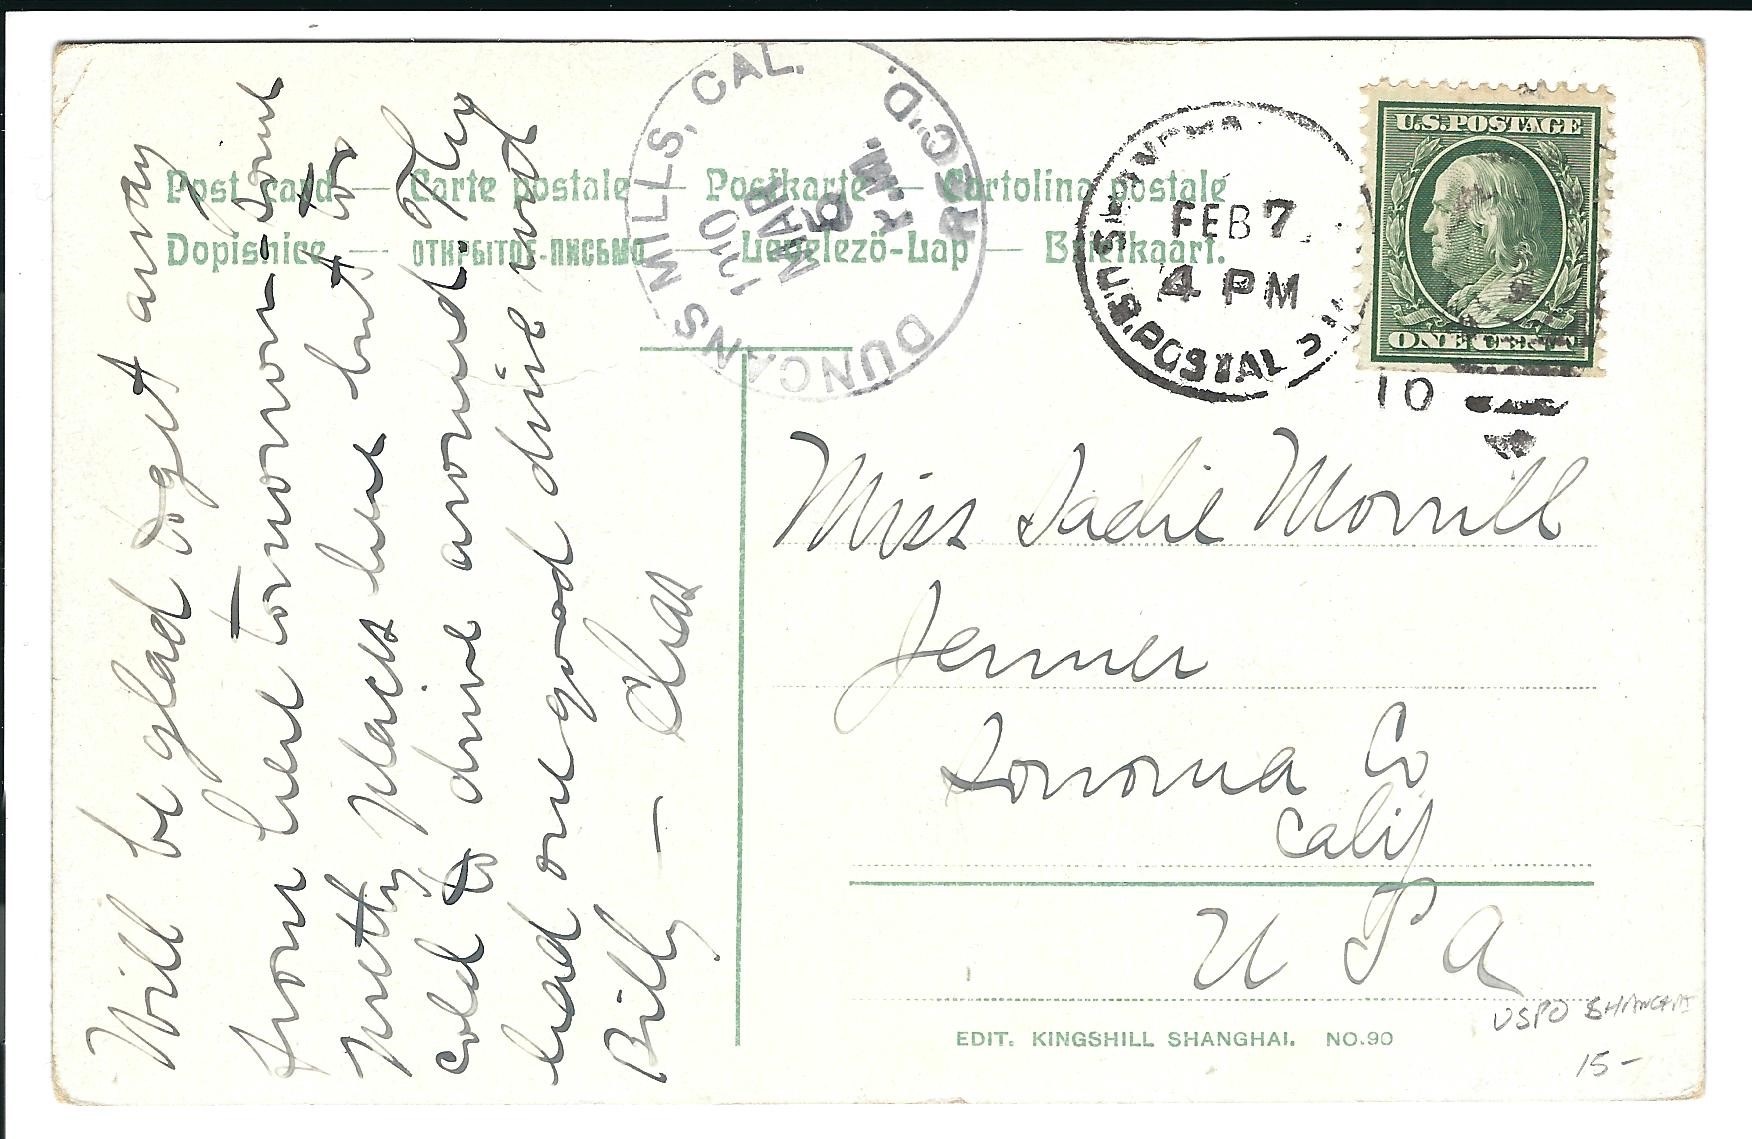 Post card — Carte postale — Postkarte — Cartolina postale
Dopisnice — ОТКРЫТОЕ ПИСЬМО — Levelező-Lap — Briefkaart.
DUNCANS MILLS, CAL.
1910
MAR
5
REC'D.
U.S. POSTAL
FEB 7
4 PM
10
U.S. POSTAGE
ONE CENT
Will be glad to get away
from here tomorrow - Some
pretty places here but too
cold to drive around. They
had one good drive and
Billy — Chas
Miss Sadie Morrill
Jenner
Sonoma Co
Calif
U S A
EDIT. KINGSHILL SHANGHAI. NO.90
USPO SHANGHAI
15 -